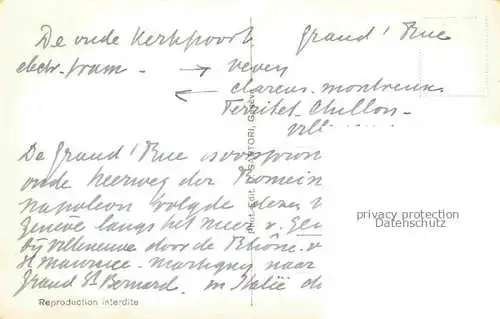 De oude Kerkpoort
electr. tram - → vevey
← clarens. montreux
Territet - Chillon -
Vill
De Grand' Rue is oorspron
oude heerweg der Romein
Napoleon volgde dezen
Genève langs het meer v.
bij Villeneuve door de Rhône. v
St Maurice. Martigny naar
Grand St Bernard. in Italië
Grand' Rue
Phot. Edit. SARTORI, Genève
privacy protection
Datenschutz
Reproduction interdite